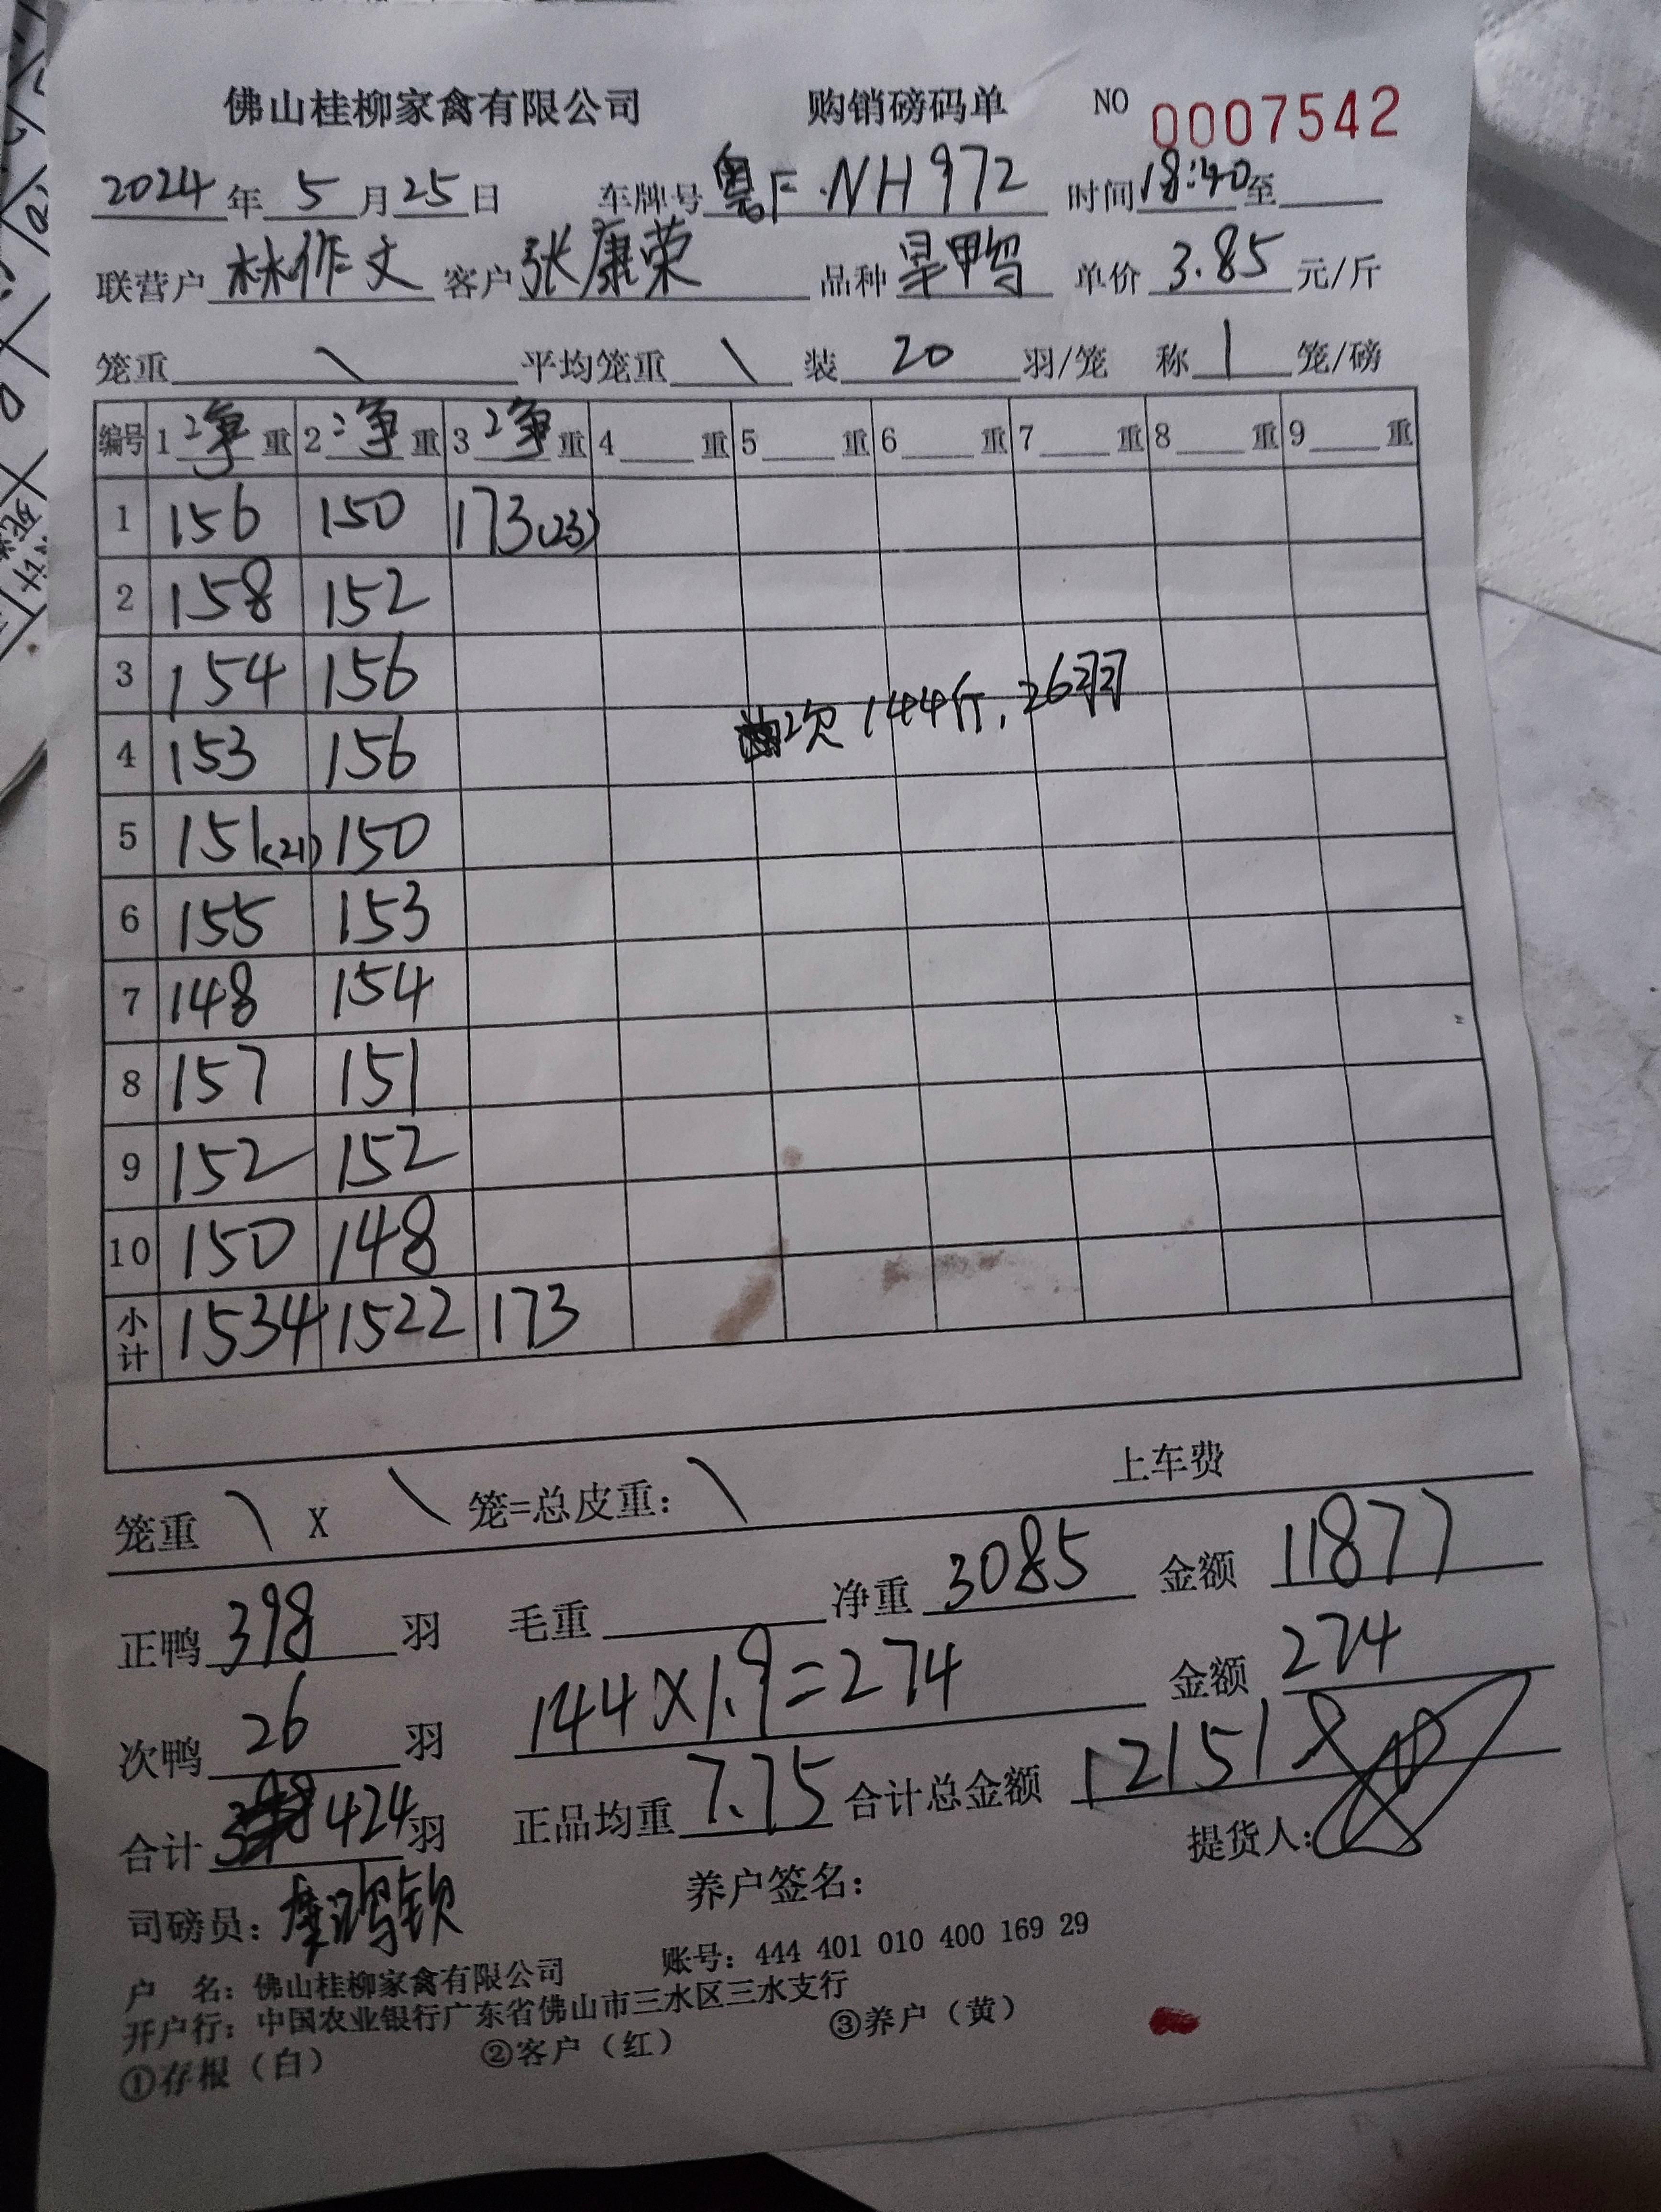 佛山桂柳家禽有限公司 购销磅码单 NO 0007542
2024年5月25日 车牌号粤F·NH972 时间18:40至
联营户林作文 客户张康荣 品种旱鸭 单价3.85元/斤
笼重\ 平均笼重\ 装20羽/笼 称1笼/磅
编号 1净重 2净重 3净重 4重 5重 6重 7重 8重 9重
1 156 150 173(23)
2 158 152
3 154 156
次144斤,26羽
4 153 156
5 151(21) 150
6 155 153
7 148 154
8 157 151
9 152 152
10 150 148
小计 1534 1522 173
上车费
笼重\X\笼=总皮重:\
正鸭398羽 毛重 净重3085 金额11877
次鸭26羽 144X1.9=274 金额274
合计424羽 正品均重7.75 合计总金额12151
司磅员: 养户签名: 提货人:
户 名:佛山桂柳家禽有限公司 账号:444 401 010 400 169 29
开户行:中国农业银行广东省佛山市三水区三水支行
①存根(白) ②客户(红) ③养户(黄)